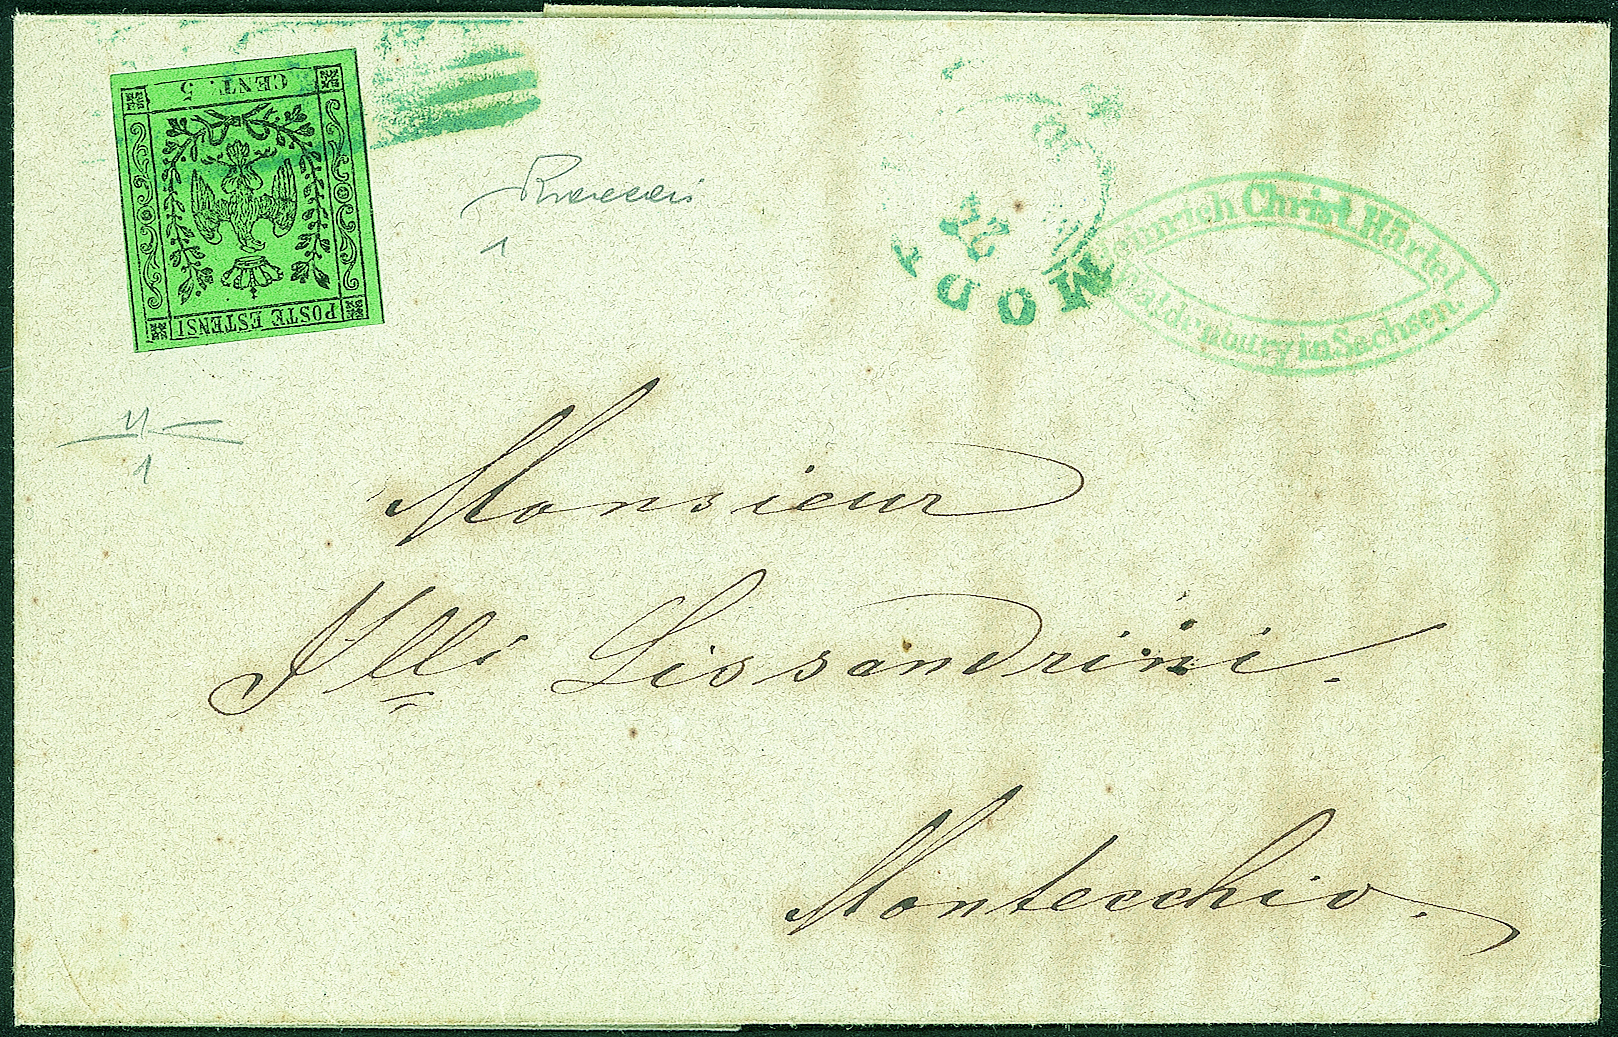 CENT. 5
POSTE ESTENSI
MOD
Heinrich Christ. Härtel
Waldenburg in Sachsen
1
1
Monsieur
Flli Lissandrini.
Montecchio.